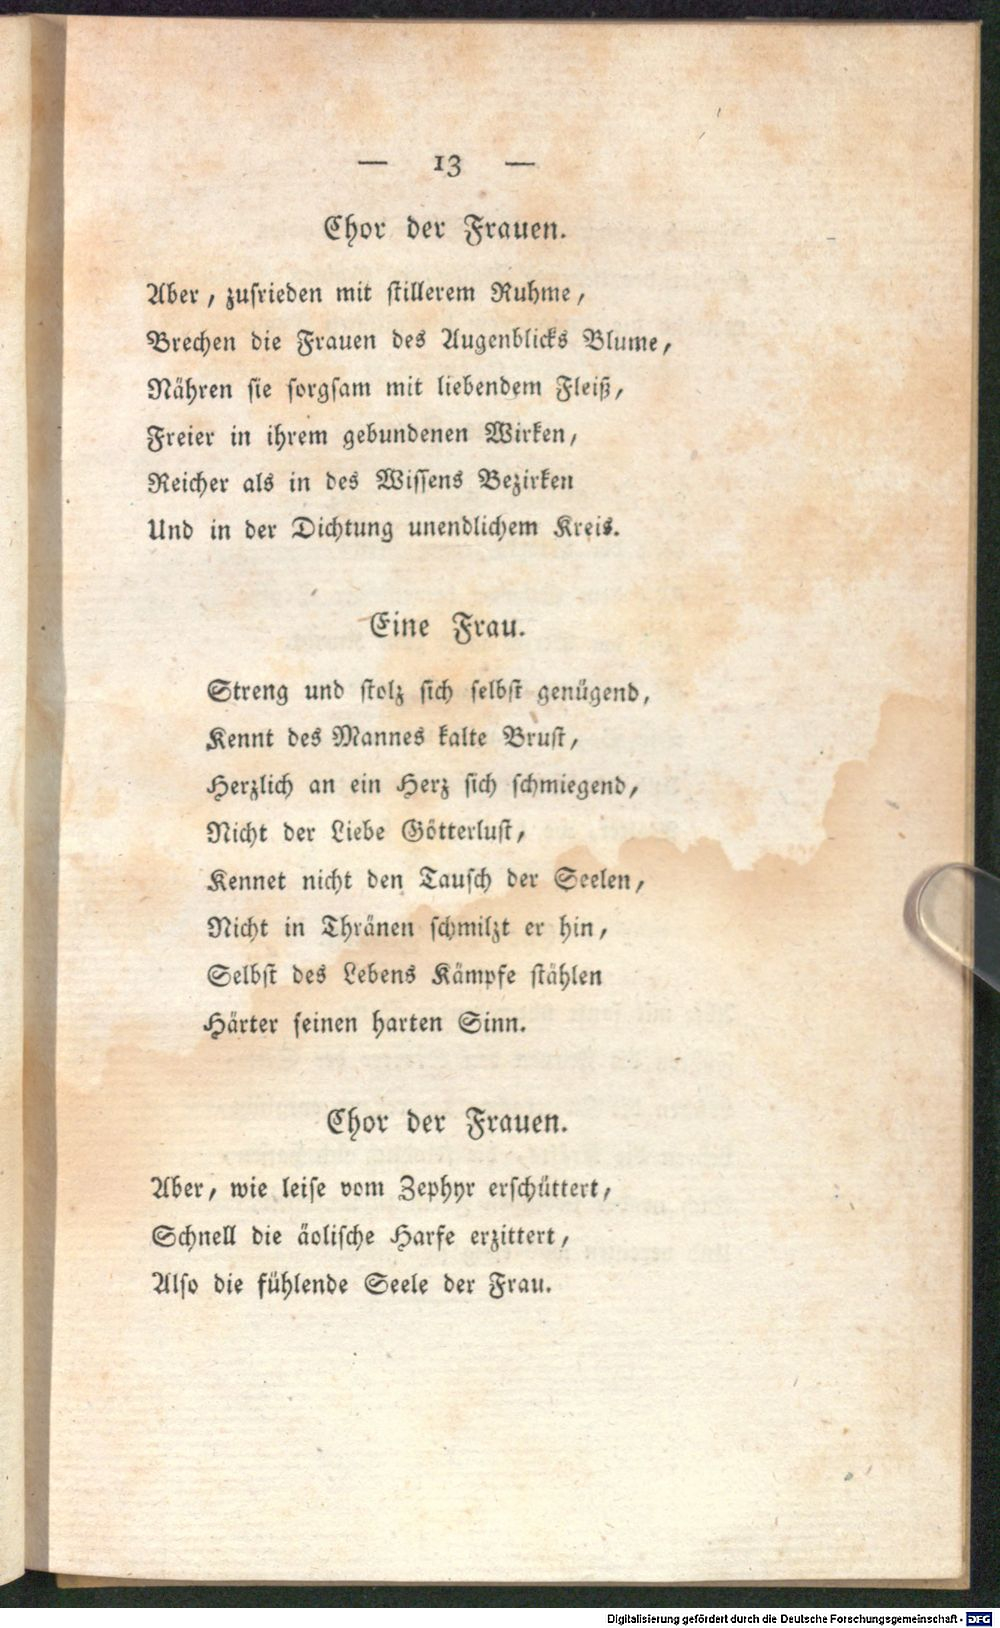 — 13 —
Chor der Frauen.
Aber, zufrieden mit stillerem Ruhme,
Brechen die Frauen des Augenblicks Blume,
Nähren sie sorgsam mit liebendem Fleiß,
Freier in ihrem gebundenen Wirken,
Reicher als in des Wissens Bezirken
Und in der Dichtung unendlichem Kreis.
Eine Frau.
Streng und stolz sich selbst genügend,
Kennt des Mannes kalte Brust,
Herzlich an ein Herz sich schmiegend,
Nicht der Liebe Götterlust,
Kennet nicht den Tausch der Seelen,
Nicht in Thränen schmilzt er hin,
Selbst des Lebens Kämpfe stählen
Härter seinen harten Sinn.
Chor der Frauen.
Aber, wie leise vom Zephyr erschüttert,
Schnell die äolische Harfe erzittert,
Also die fühlende Seele der Frau.
Digitalisierung gefördert durch die Deutsche Forschungsgemeinschaft - DFG